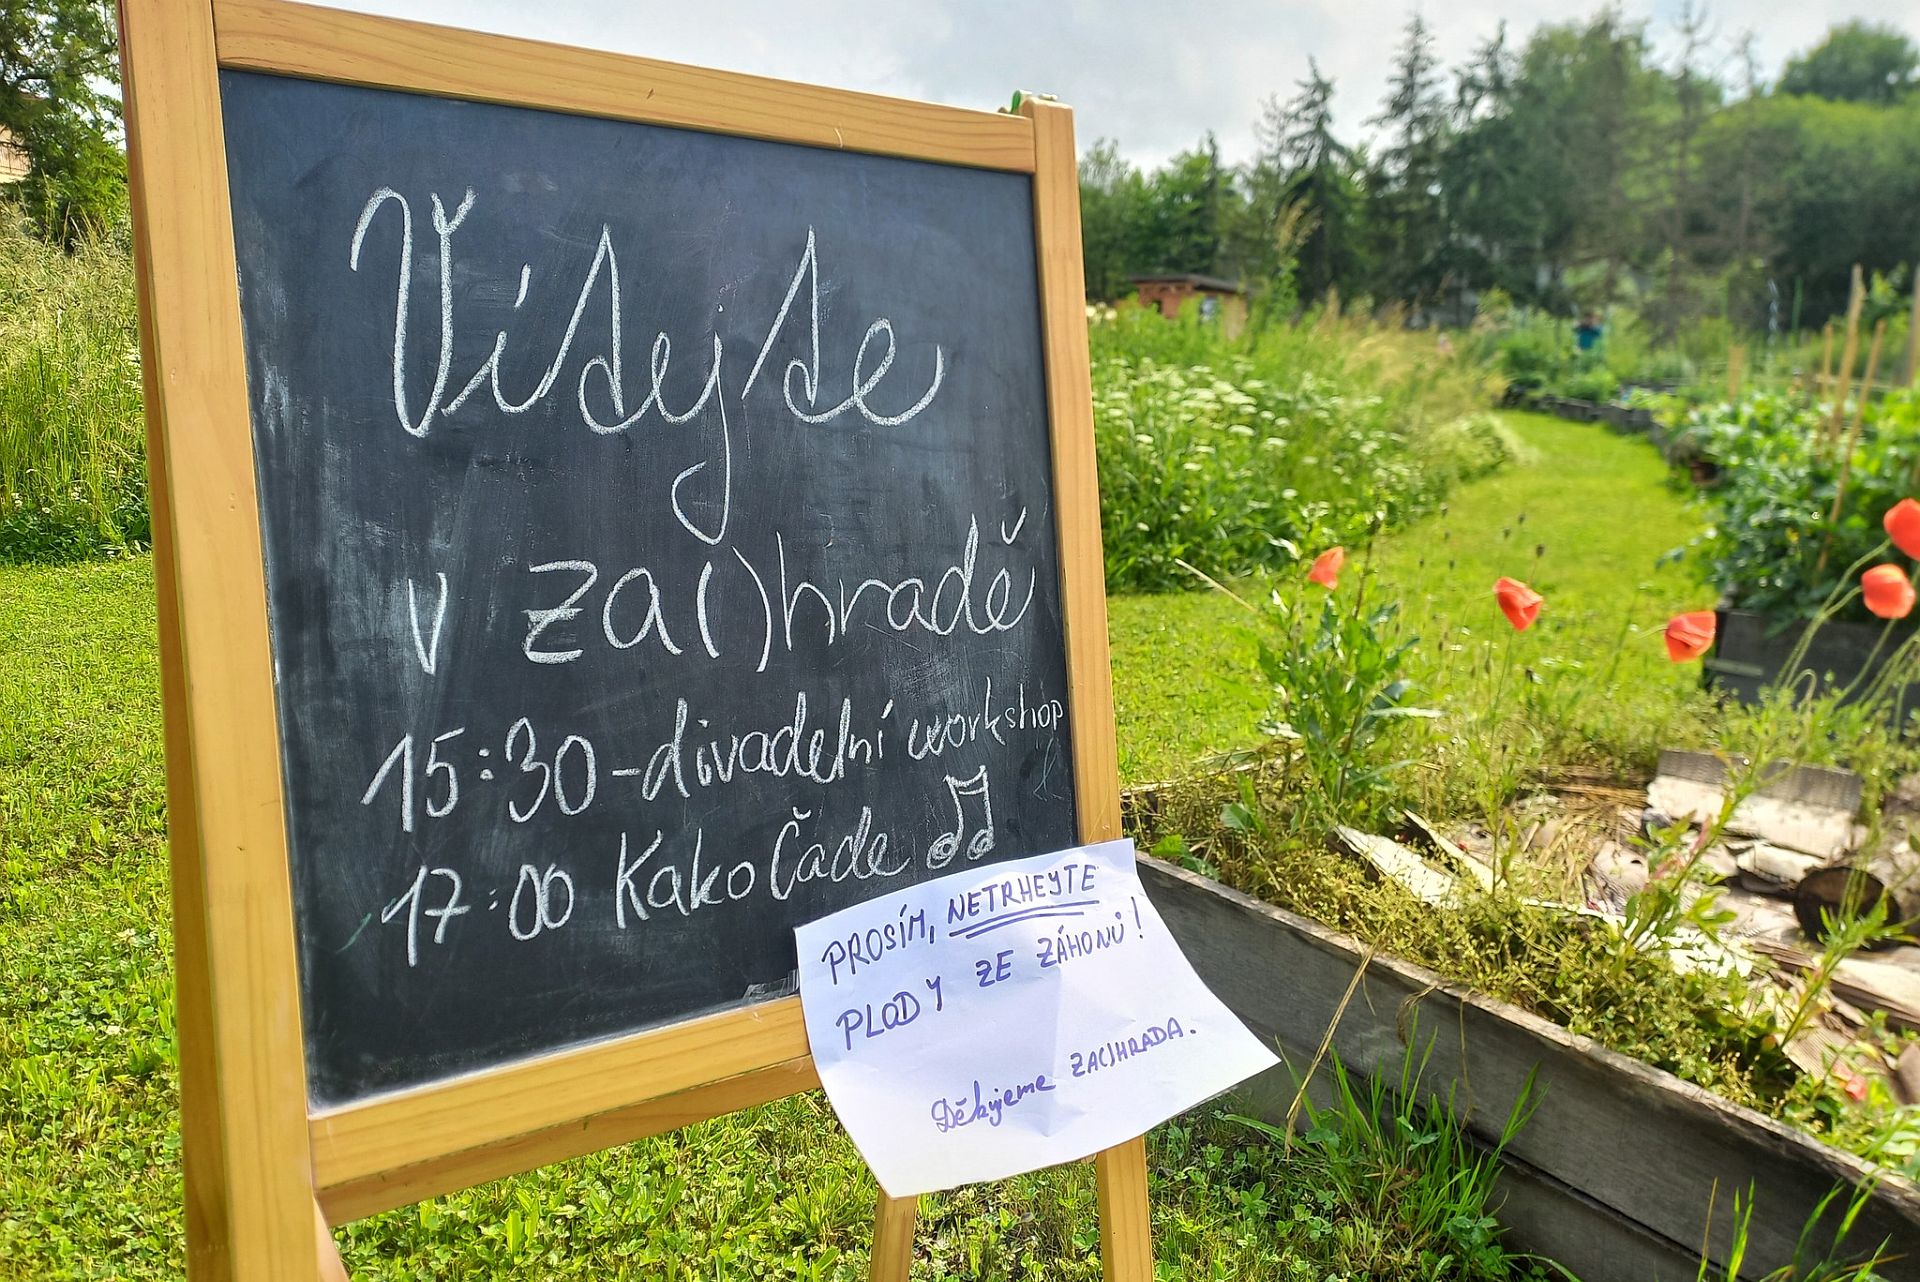 Vísejse
v za()hradě
15:30 - divadelní workshop
17:00 Kako Čade ♫
PROSÍM, NETRHEJTE
PLODY ZE ZÁHONŮ!
Děkujeme ZA()HRADA.